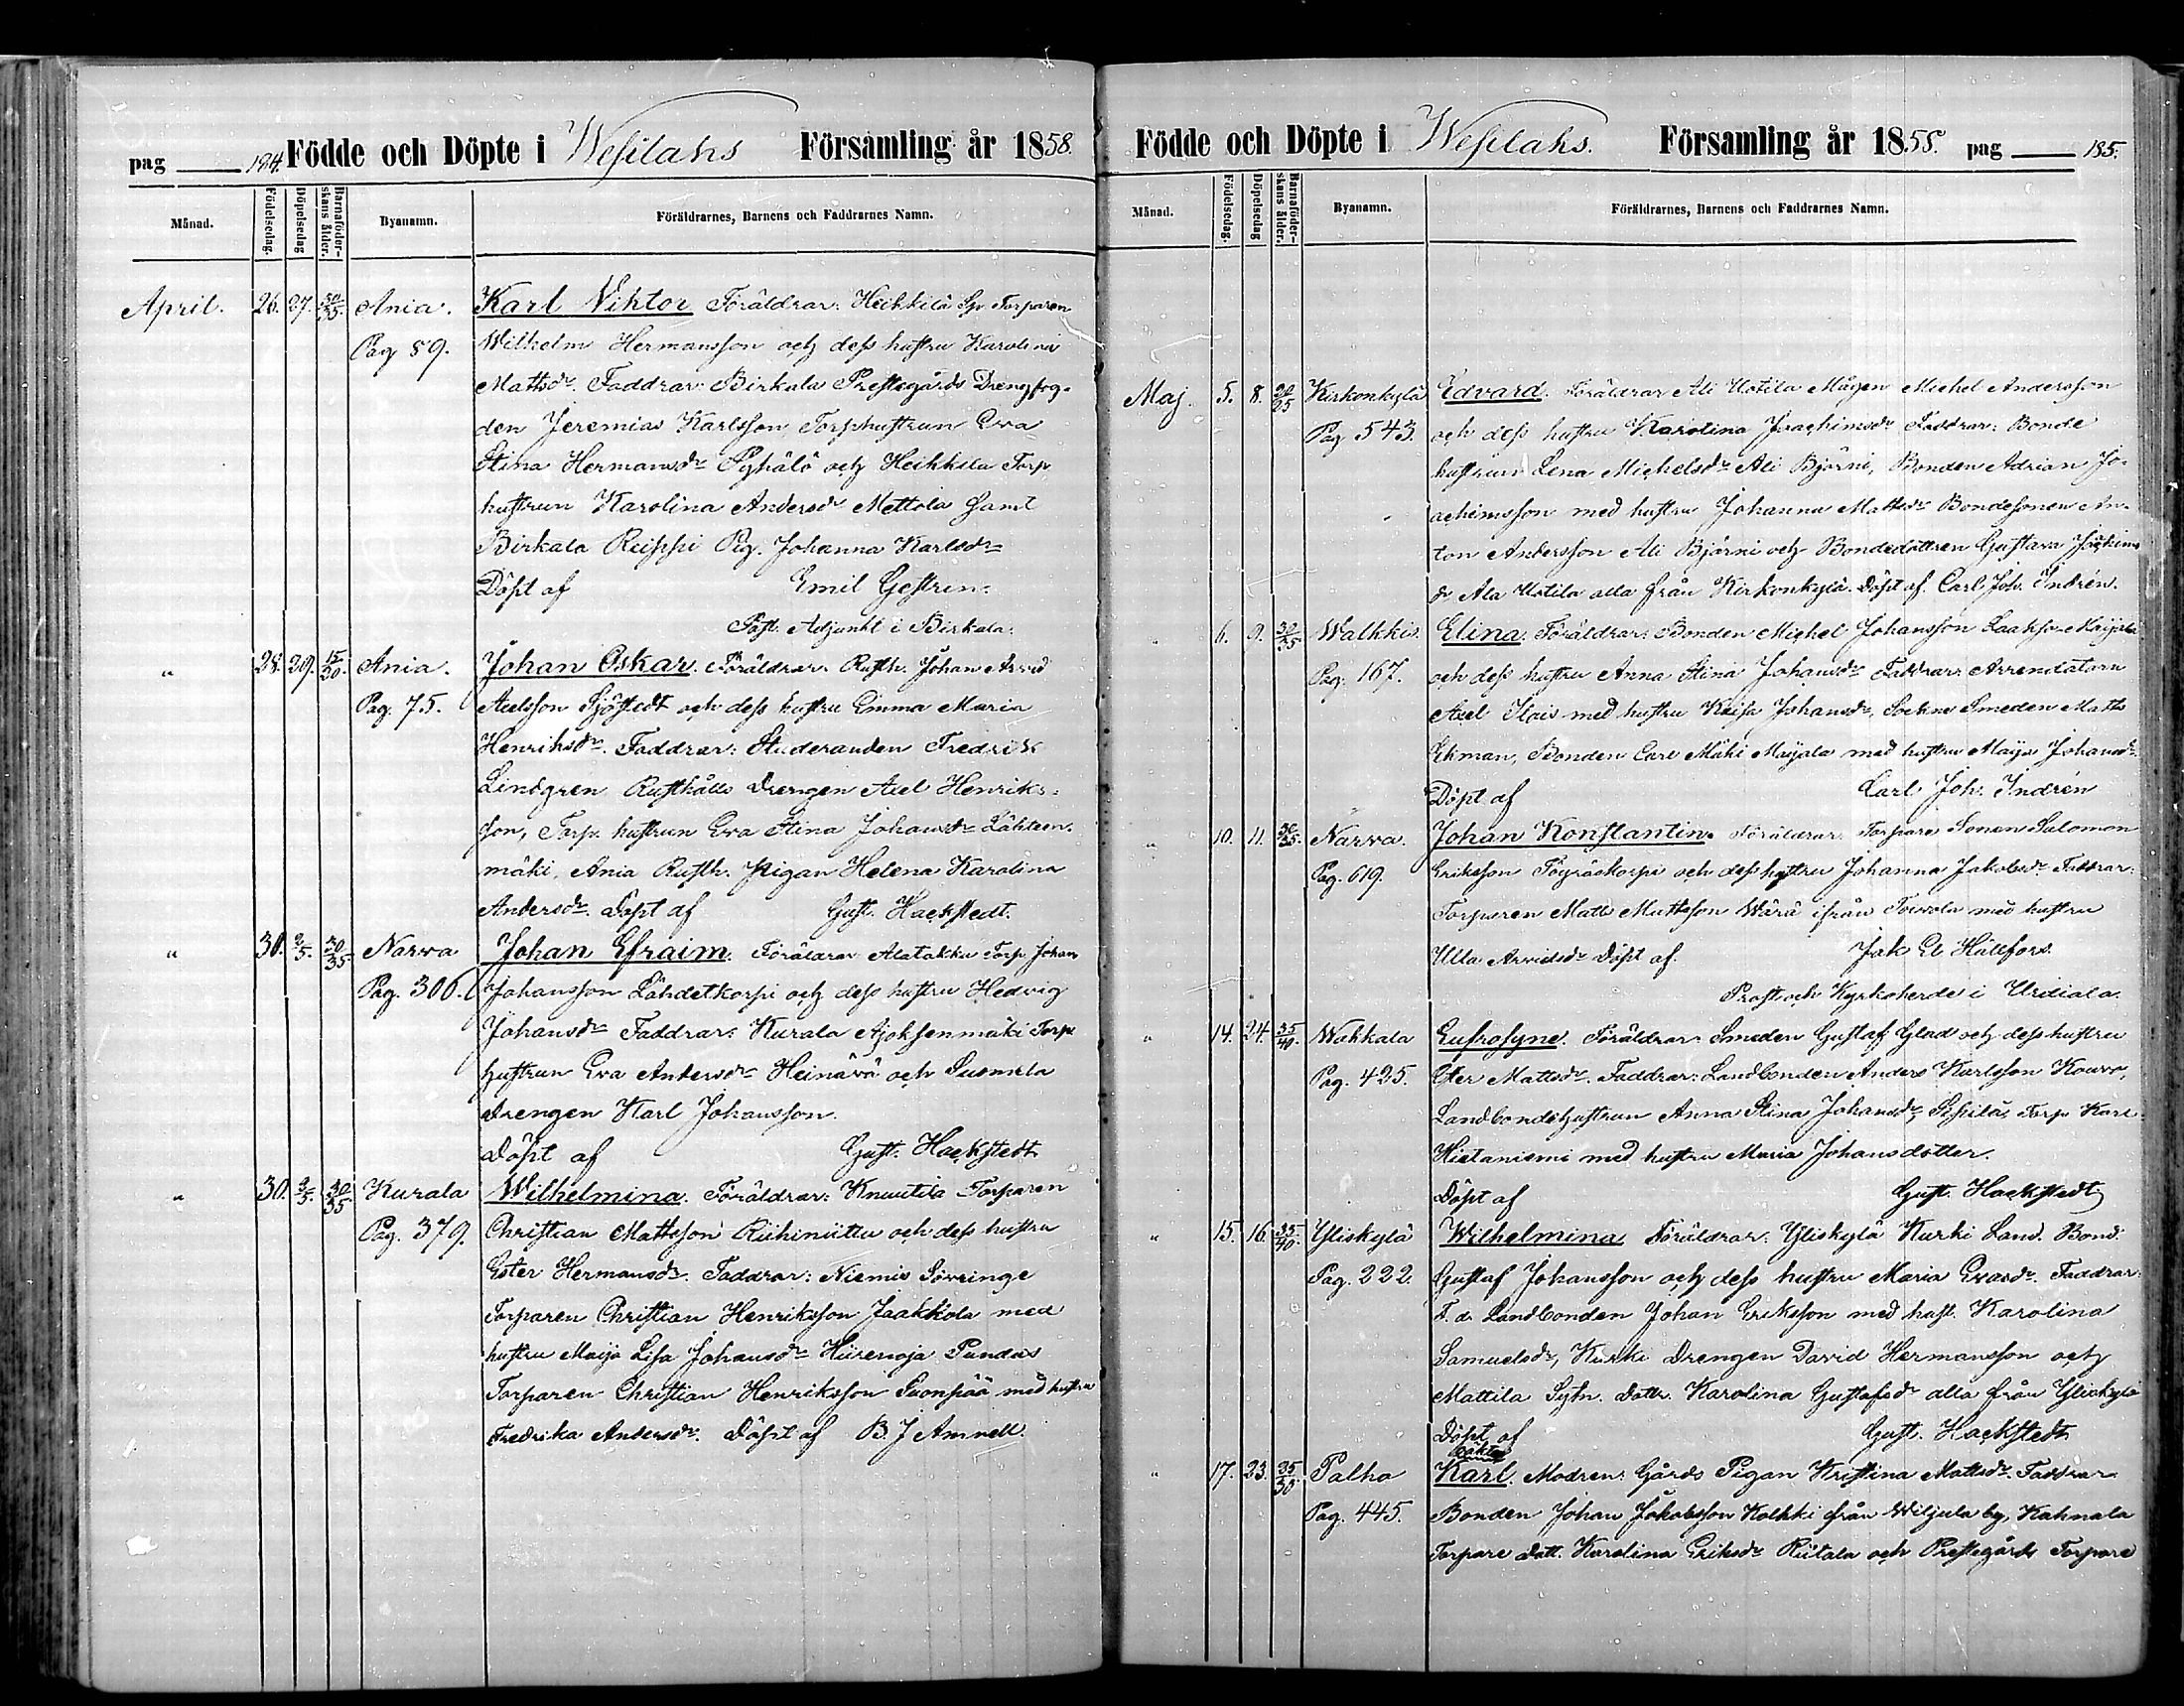 pag 184. Födde och Döpte i Wesilahs Församling år 1858.
Månad. Födelsedag. Döpelsedag Barnaföder-skans ålder. Byanamn. Föräldrarnes, Barnens och Faddrarnes Namn.
April. 26. 27. 30/35. Ania. Karl Viktor Föräldrar: Heikkilä Torparen
Pag 59. Wilhelm Hermansson och dess hustru Karolina
Mattsdr. Faddrar: Birkala Prestegårds Drengfog-
den Jeremias Karlsson, Torphustrun Eva
Stina Hermansdr Pyhälö och Heikkila Torp
hustrun Karolina Andersdr Mettola samt
Birkala Reippi Pig. Johanna Karlsdr
Döpt af Emil Gestren.
Past. Adjunkt i Birkala.
" 28. 29. 15/20. Ania. Johan Oskar. Föräldrar: Rusth. Johan Arvid
Pag. 75. Axelsson Sjöstedt och dess hustru Emma Maria
Henriksdr. Faddrar: Studeranden Fredrik
Lindgren Rusthålls Drengen Axel Henriks-
son, Torp. hustrun Eva Stina Johansdr Lähteen-
mäki, Ania Rusth. Pigan Helena Karolina
Andersdr. Döpt af Gust. Hackstedt.
" 30. 2/5. 30/35 Narva Johan Efraim. Föräldrar Alatakku Torp. Johan
Pag. 306. Johansson Lähdetkorpi och dess hustru Hedvig
Johansdr Faddrar: Kurala Ajoksenmäki Torp
hustrun Eva Andersdr Heinävä och Susmela
Drengen Karl Johansson.
Döpt af Gust. Hackstedt
" 30. 2/5. 30/35 Kurala Wilhelmina. Föräldrar: Knuutila Torparen
Pag. 379. Christian Mattsson Riihiniittu och dess hustru
Ester Hermansdr. Faddrar: Niemis Sörringe
Torparen Christian Henriksson Jaakkola med
hustru Maija Lisa Johansdr Hiirenoja Pundas
Torparen Christian Henriksson Suonpää med hustru
Fredrika Andersdr. Döpt af B. J Amnell.
Födde och Döpte i Wesilahs. Församling år 1858. pag 185.
Månad. Födelsedag. Döpelsedag Barnaföder-skans ålder. Byanamn. Föräldrarnes, Barnens och Faddrarnes Namn.
Maj. 5. 8. 20/25 Kirkonkylä Edvard. Föräldrar Ali Uotila Mågen Michel Andersson
Pag 543. och dess hustru Karolina Joachimsdr Faddrar: Bonde
hustrun Lena Michelsdr Ali Björni, Bonden Adrian Jo-
achimsson med hustru Johanna Mattsdr Bondesonen An-
ton Andersson Ali Björni och Bondedottren Gustava Joachims
dr Ala Uotila alla från Kirkonkylä. Döpt af. Carl Joh. Indrén.
" 6. 9. 30/35 Walkkis. Elina. Föräldrar: Bonden Michel Johansson Laakso-Maijala
Pag. 167. och dess hustru Anna Stina Johansdr Faddrar: Arrendatorn
Axel Ilais med hustru Kaisa Johansdr, Sockne Smeden Matts
Ekman, Bonden Carl Mäki Maijala med hustru Maija Johansdr.
Döpt af Carl Joh. Indrén
" 10. 11. 30/35. Narva. Johan Konstantin. Föräldrar: Torpare Sonen Salomon
Pag. 619. Eriksson Töyräskorpi och dess hustru Johanna Jakobsdr Faddrar:
Torparen Matts Mattsson Wärä ifrån Toivola med hustru
Ulla Arvidsdr Döpt af. Jak El Hällfors.
Prost och Kyrkoherde i Urdiala.
" 14. 24. 35/40. Wakkala Eufrosyne. Föräldrar: Smeden Gustaf Glad och dess hustru
Pag. 425. Eter Mattsdr. Faddrar: Landbonden Anders Karlsson Kouvo,
Landbondehustrun Anna Stina Johansdr Sipilä, Torp Karl
Hietaniemi med hustru Maria Johansdotter.
Döpt af Gust. Hackstedt
" 15. 16. 35/40. Yliskylä Wilhelmina Föräldrar: Yliskylä Kurki Land. Bond.
Pag. 222. Gustaf Johansson och dess hustru Maria Evasdr. Faddrar:
F. d. Landbonden Johan Eriksson med hust. Karolina
Samuelsdr, Kurki Drengen David Hermansson och
Mattila Sytn. Dottr. Karolina Gustafsdr alla från Yliskylä
Döpt af Gust. Hackstedt
oäkta
" 17. 23. 35/30 Palho Karl. Modren: Gårds Pigan Kristina Mattsdr. Faddrar
Pag. 445. Bonden Johan Jakobsson Kolkki från Wiljula by, Kahnala
Torpare Dott. Karolina Eriksdr Riitala och Prestegårds Torpare